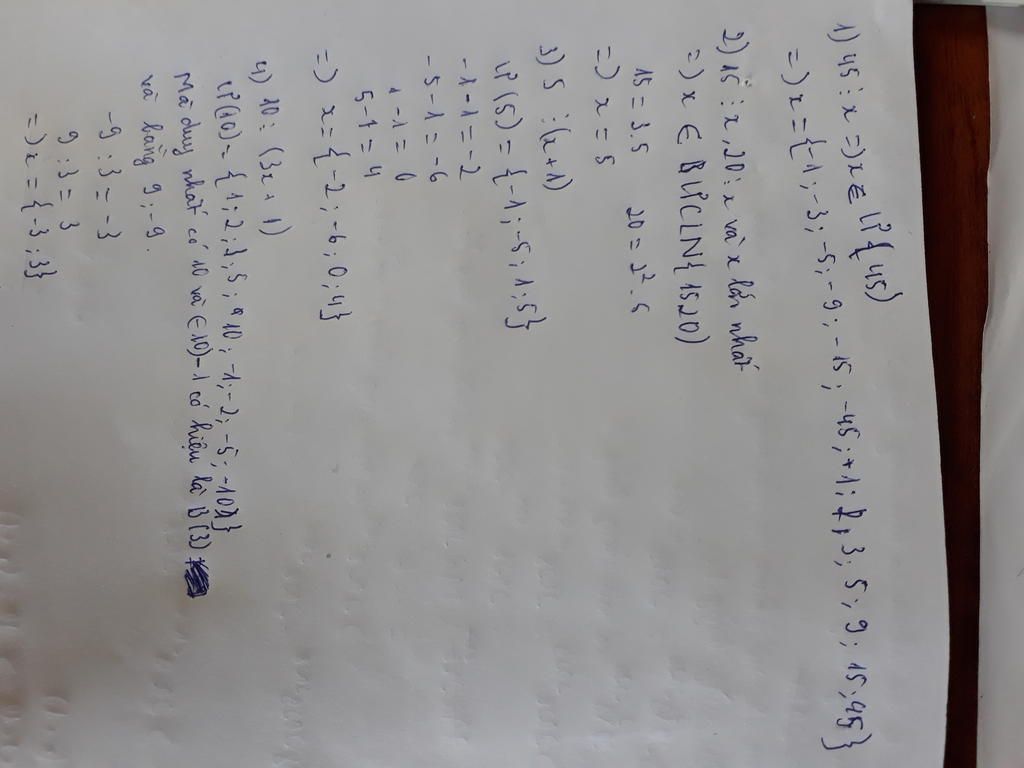 1) 45 ⋮ x => x ∈ Ư{45)
=> x = {-1 ; -3 ; -5 ; -9 ; -15 ; -45 ; +1 ; 3 ; 5 ; 9 ; 15 ; 45}
2) 15 ⋮ x, 20 ⋮ x và x lớn nhất
=> x ∈ ƯCLN{1520)
15 = 3.5 20 = 2².5
=> x = 5
3) 5 ⋮ (x+1)
Ư(5) = {-1 ; -5 ; 1 ; 5}
-1 - 1 = -2
-5 - 1 = -6
1 - 1 = 0
5 - 1 = 4
=> x = {-2 ; -6 ; 0 ; 4}
4) 10 ⋮ (3x + 1)
Ư(10) = {1 ; 2 ; 5 ; 10 ; -1 ; -2 ; -5 ; -10}
Mà duy nhất có 10 và (-10) - 1 có hiệu là B(3)
và bằng 9 ; -9.
-9 : 3 = -3
9 : 3 = 3
=> x = {-3 ; 3}